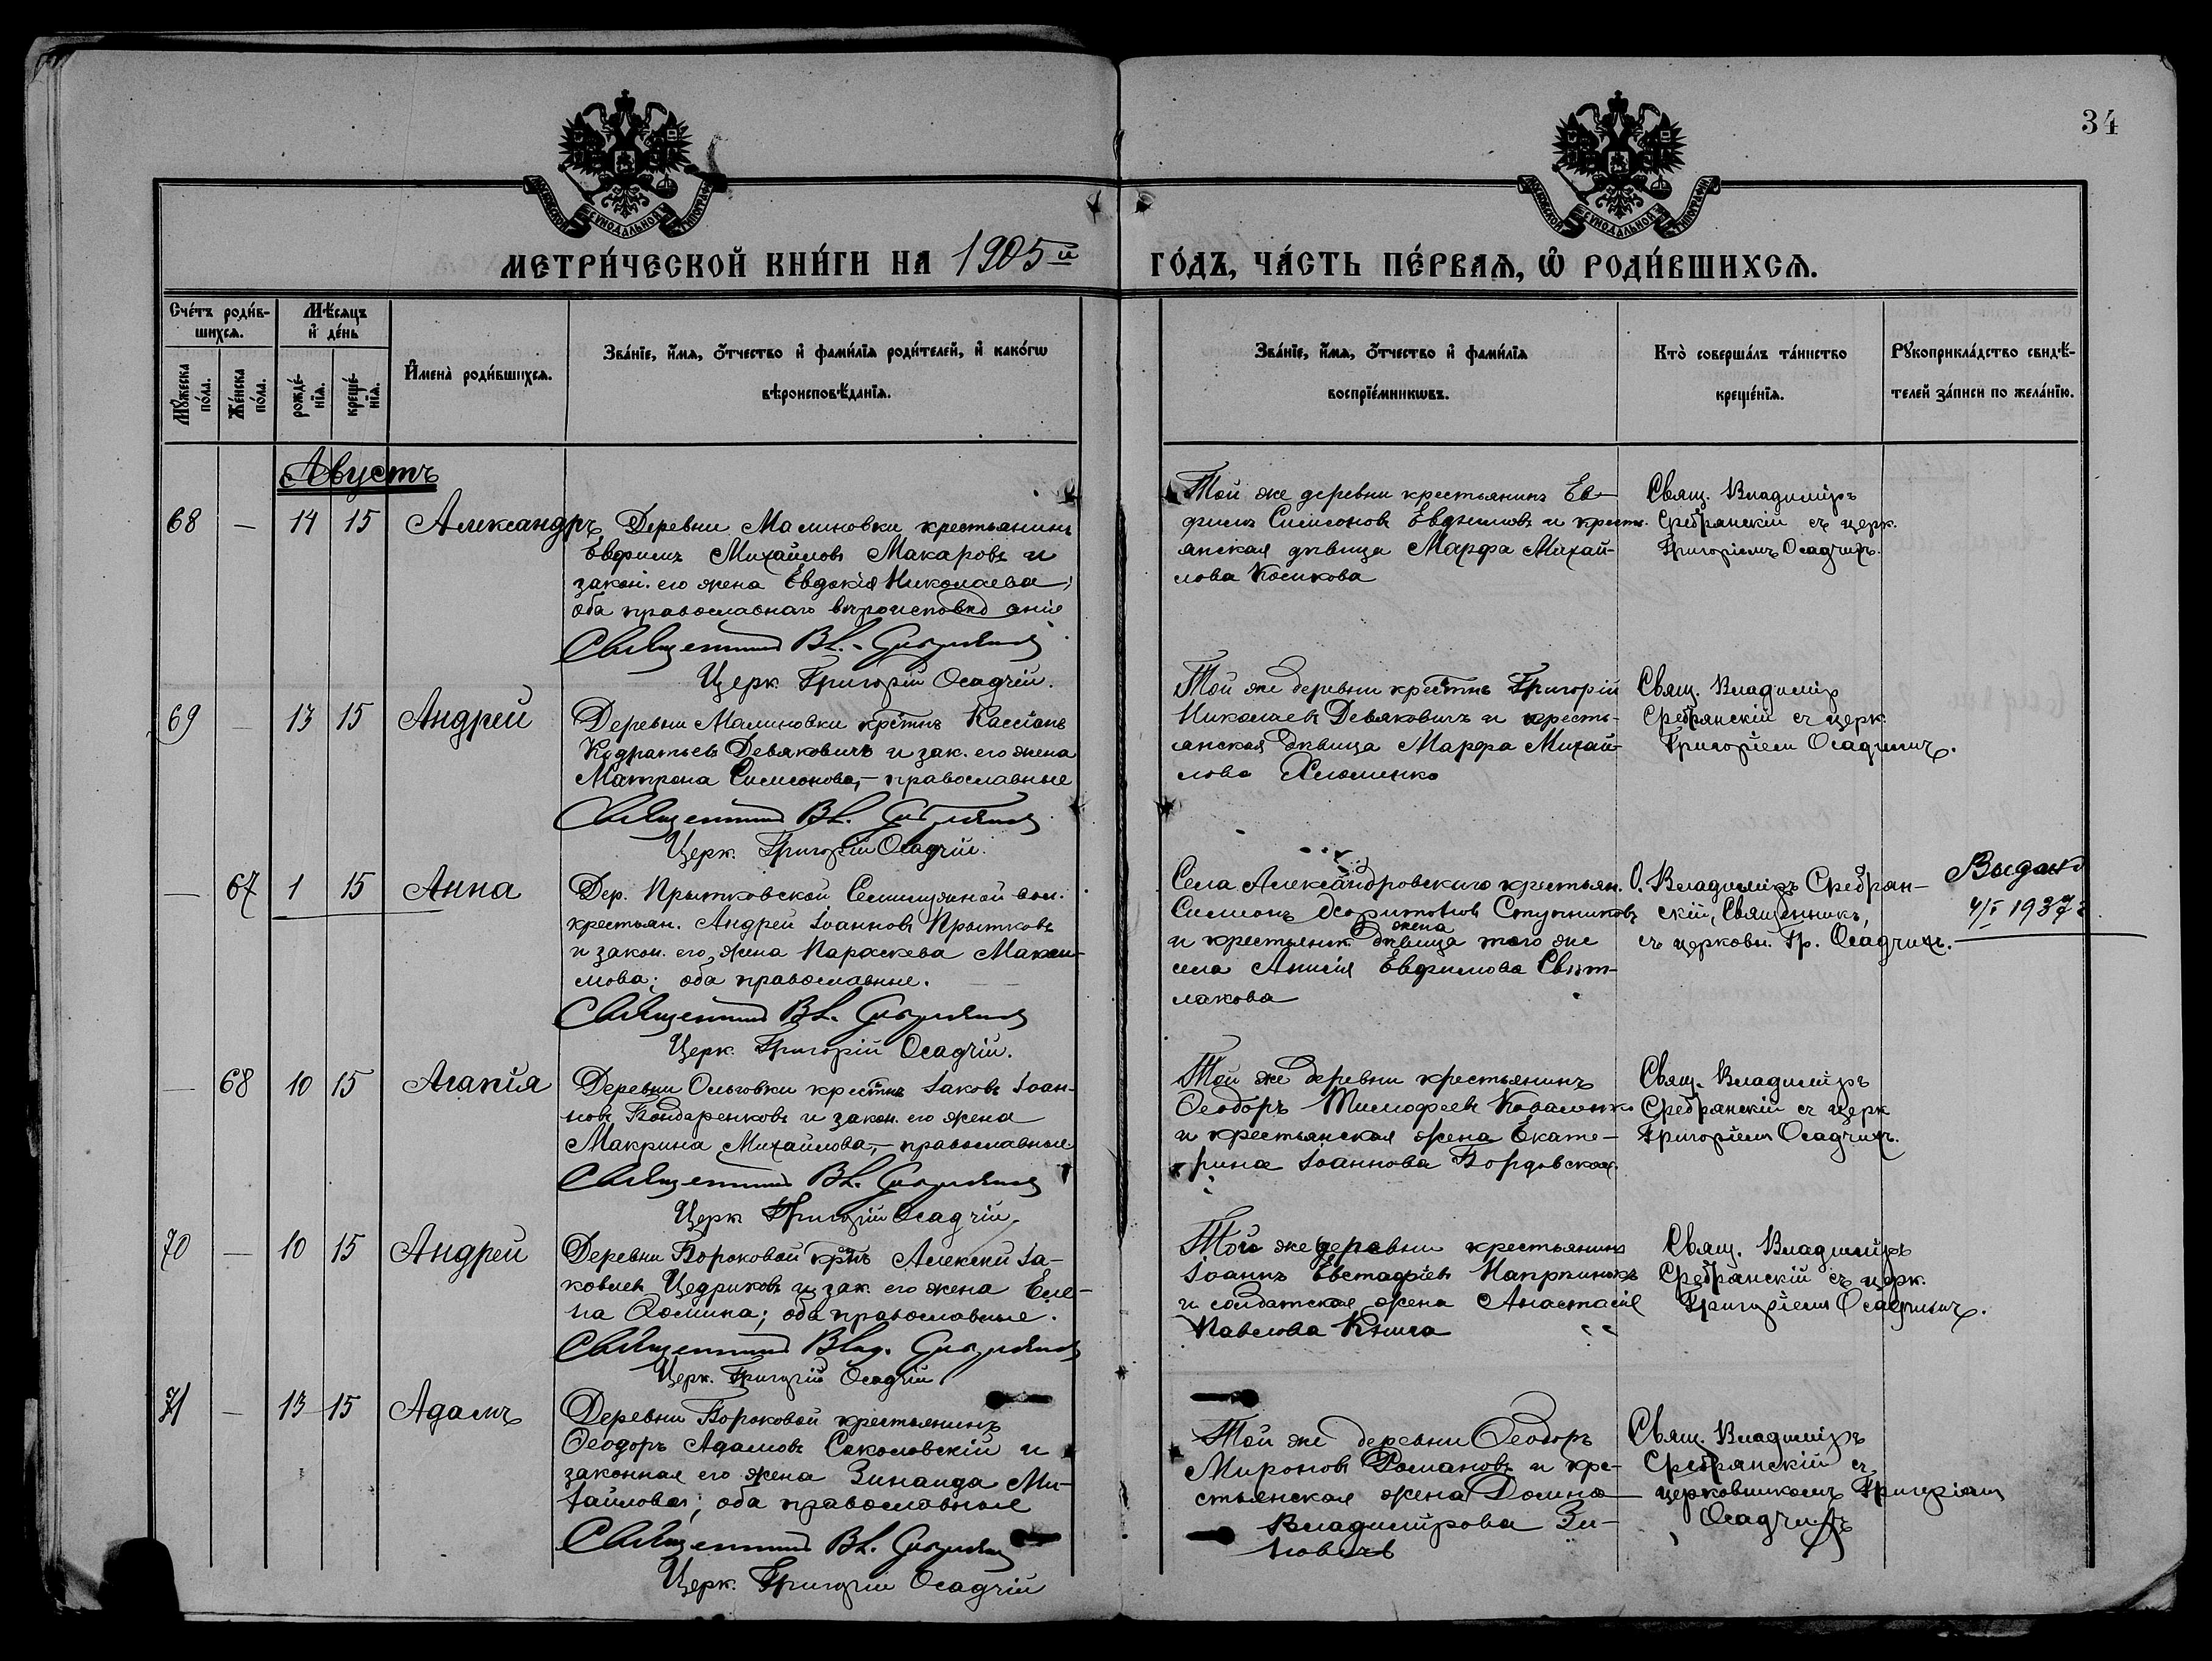 34
МОСКОВСКОЙ СѴНОДАЛЬНОЙ ТИПОГРАФІИ
МОСКОВСКОЙ СѴНОДАЛЬНОЙ ТИПОГРАФІИ
МЕТРИ́ЧЕСКОЙ КНИ́ГИ НА 1905й
ГО́ДЪ, ЧА́СТЬ ПЕ́РВАѦ, Ѡ҆ РОДИ́ВШИХСѦ.
Сче́тъ роди́в-
шихсѧ.
Мѣ́сѧцъ
и҆ де́нь
Мꙋ́жеска по́ла.
Же́нска по́ла.
рожде́-нїѧ.
креще́-нїѧ.
И҆мена̀ роди́вшихсѧ.
Зва́нїе, и҆́мѧ, ѻ҆́тчество и҆ фами́лїѧ роди́телей, и҆ како́гѡ
вѣроисповѣ́данїѧ.
Зва́нїе, и҆́мѧ, ѻ҆́тчество и҆ фами́лїѧ
воспрїе́мникѡвъ.
Кто̀ соверша́лъ та́инство
креще́нїѧ.
Рꙋкоприкла́дство свидѣ́-
телей за́писи по жела́нїю.
Августъ
68 — 14 15 Александръ
Деревни Малиновки крестьянинъ
Евфимъ Михайловъ Макаровъ и
закон. его жена Евдокія Николаева;
оба православнаго вѣроисповѣданія
Священникъ Вл. Сребрянскій
Церк. Григорій Осадчій.
Той же деревни крестьянинъ Ев-
фимъ Симеоновъ Евдкимовъ и кресть-
янская дѣвица Марфа Михай-
лова Косикова
Свящ. Владиміръ
Сребрянскій съ церк.
Григоріемъ Осадчимъ.
69 — 13 15 Андрей
Деревни Малиновки крестнъ Кассіанъ
Кодратьевъ Девяковичъ и зак. его жена
Матрона Симеонова,- православные
Священникъ Вл. Сребрянскій
Церк. Григорій Осадчій.
Той же деревни крестнъ Григорій
Николаевъ Девяковичъ и кресть-
янская дѣвица Марфа Михай-
лова Хлюменко
Свящ. Владимір
Сребрянскій съ церк.
Григоріем Осадчимъ.
— 67 1 15 Анна
Дер. Прытковской вол.
крестьян. Андрей Іоанновъ Прытковъ
и закон. его жена Параскева Макси-
мова; оба православные.
Священникъ Вл. Сребрянскій
Церк. Григорій Осадчій.
Села Александровскаго крестьян.
Симеонъ Ступниковъ
жена
и крестьянск. дѣвица того же
села Анисія Евфимова Свѣт-
лакова
О. Владиміръ Сребрян-
скій, Священникъ,
съ церковн. Гр. Осадчимъ.
Выдано
4/I 1937 г
— 68 10 15 Агапія
Деревни Ольговки крестнъ Іаковъ Іоан-
новъ Бондаренковъ и закон. его жена
Макрина Михайлова,- православные.
Священникъ Вл. Сребрянскій
Церк. Григорій Осадчій.
Той же деревни крестьянинъ
Ѳеодоръ Тимофеевъ Коваленк.
и крестьянская жена Екате-
рина Іоаннова Бордовская.
Свящ. Владиміръ
Сребрянскій съ церк
Григоріемъ Осадчимъ.
70 — 10 15 Андрей
Деревни Бороковой крнъ Алексѣй Іа-
ковлевъ Цедриковъ и зак. его жена Еле-
на Ѳомина; оба православные.
Священникъ Влад. Сребрянскій
Церк. Григорій Осадчій
Той же деревни крестьянинъ
Іоаннъ Евстафіевъ
и солдатская жена Анастасія
Павлова Книга
Свящ. Владиміръ
Сребрянскій съ церк.
Григоріемъ Осадчимъ.
71 — 13 15 Адамъ
Деревни Бороковой крестьянинъ
Ѳеодоръ Адамовъ Соколовскій и
законная его жена Зинаида Ми-
хайлова; оба православные
Священникъ Вл. Сребрянскій
Церк. Григорій Осадчій
Той же деревни Ѳеодоръ
Мироновъ Романовъ и кре-
стьянская жена Домна
Владимірова Зи-
новичъ
Свящ. Владиміръ
Сребрянскій съ
церковникомъ Григоріемъ
Осадчимъ